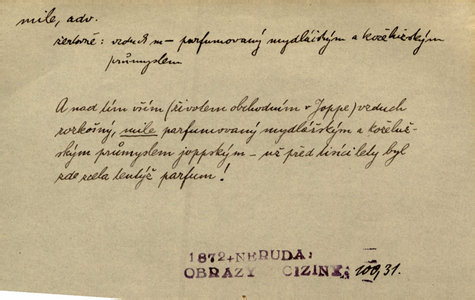 mile, adv.
žertovně: vzduch m – parfumovaný mydlářským a koželužským
průmyslem
A nad tím vším (životem obchodním v Joppe) vzduch
rozkošný, mile parfumovaný mydlářským a koželuž-
ským průmyslem joppským – už před tisíci lety byl
zde zcela tentýž parfum!
1872+NERUDA:
OBRAZY CIZINY: 100,31.